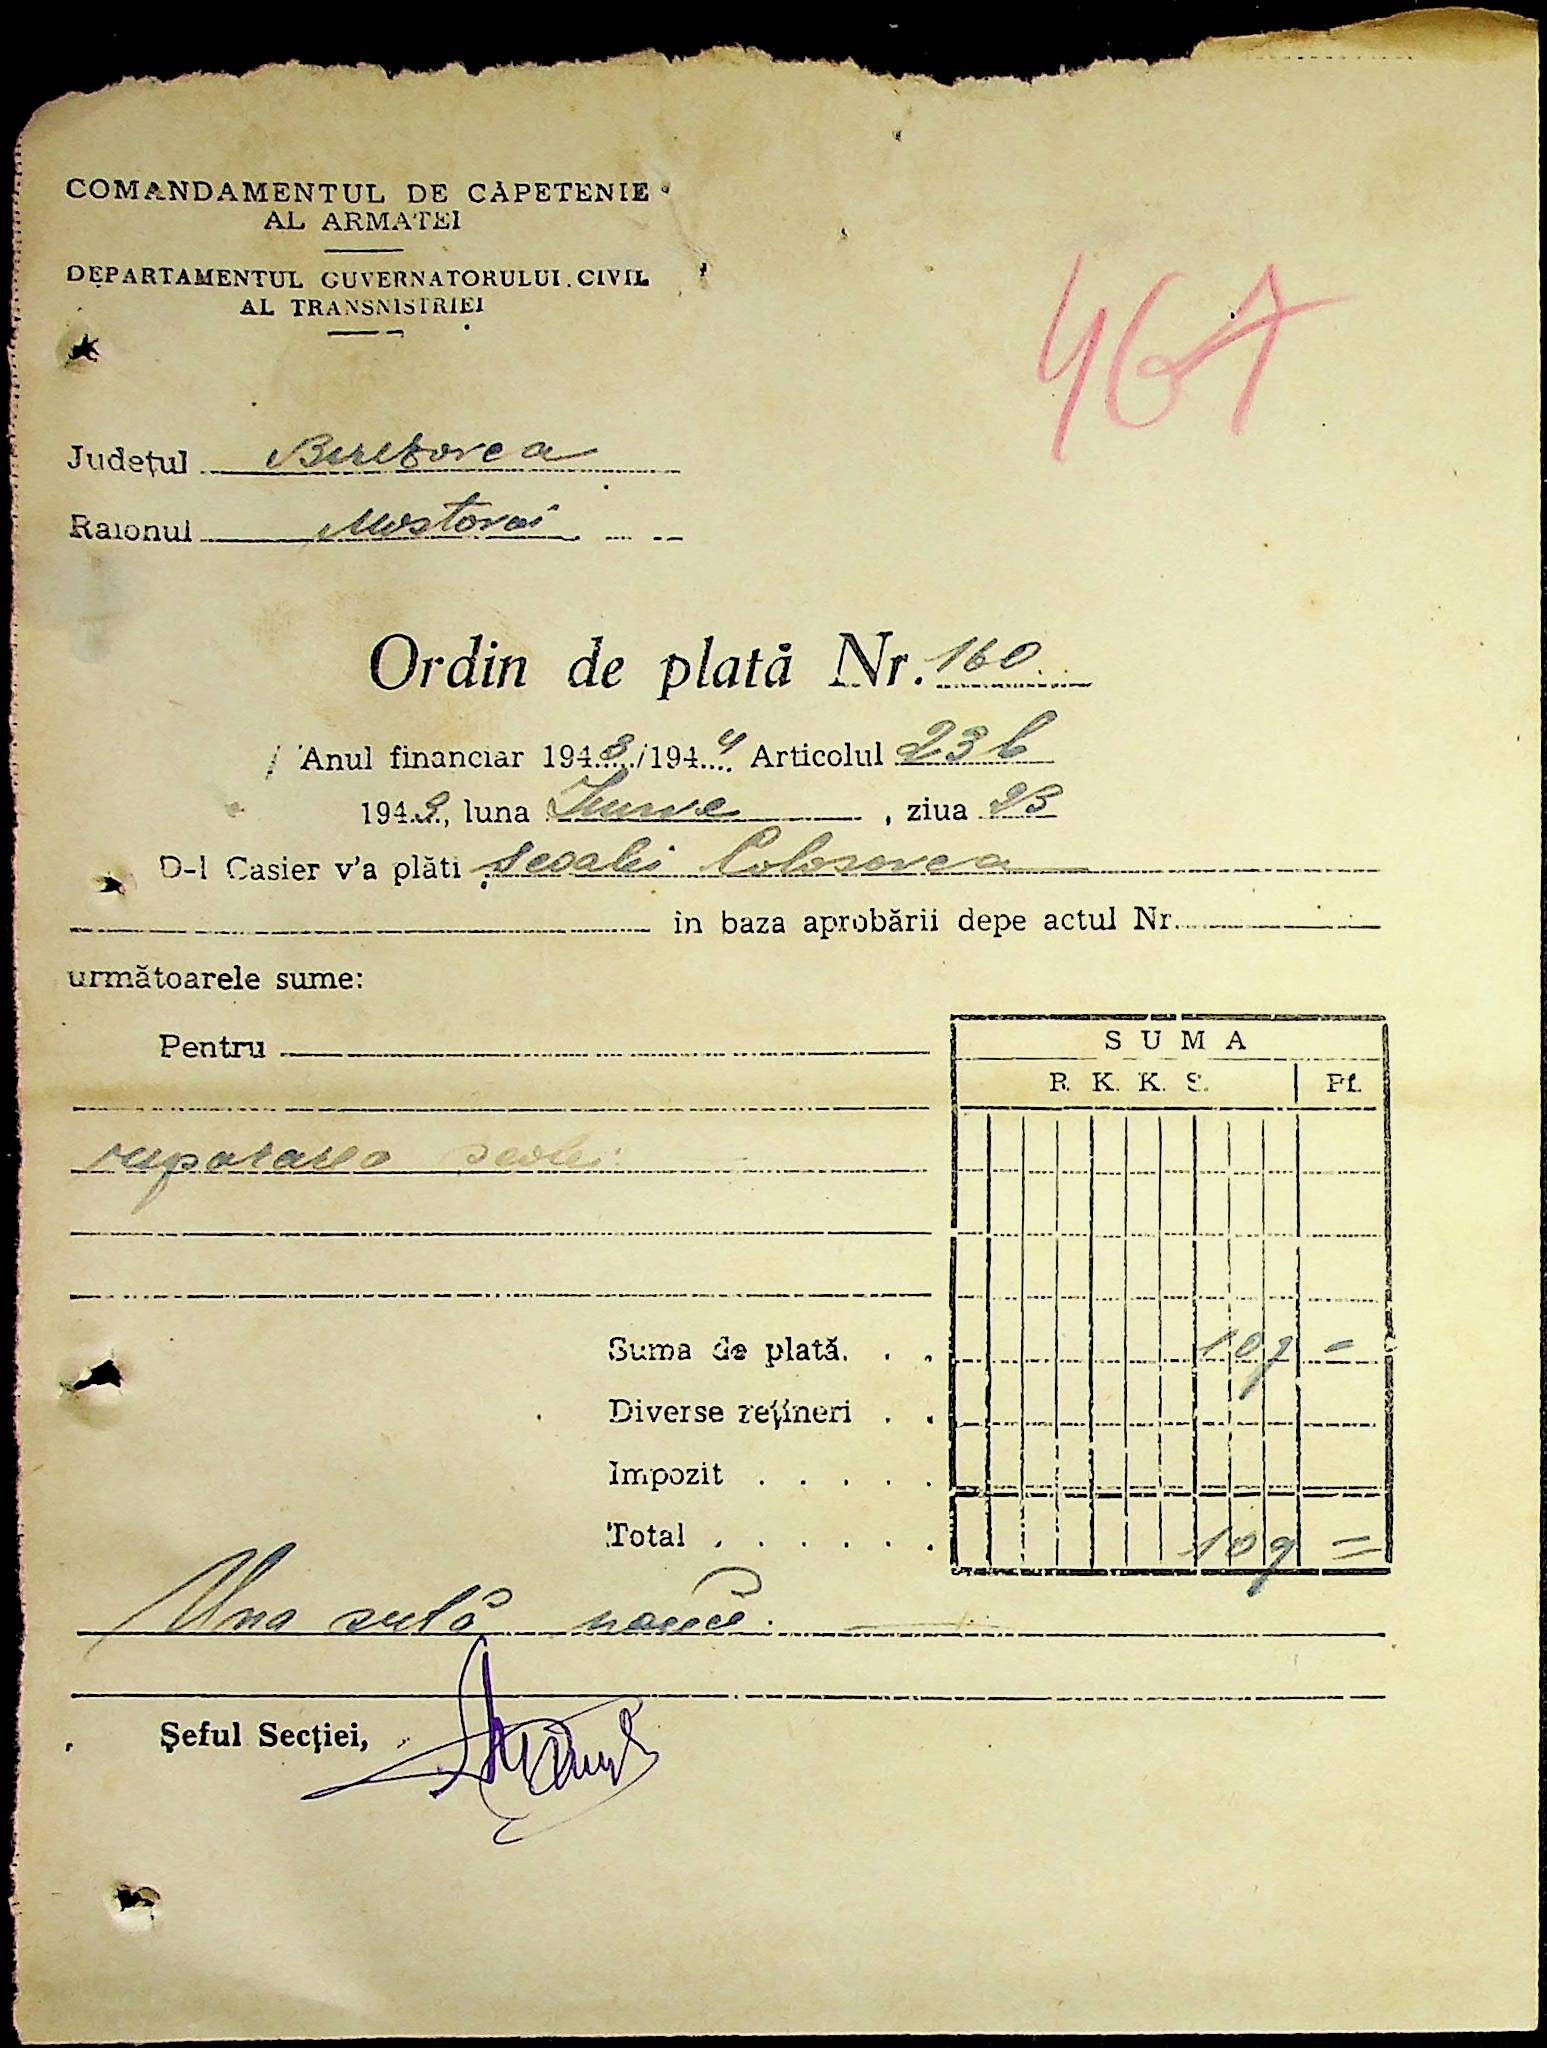 COMANDAMENTUL DE CĂPETENIE
AL ARMATEI
DEPARTAMENTUL GUVERNATORULUI CIVIL
AL TRANSNISTRIEI
467
Județul Berezovca
Raionul Mostovoi
Ordin de plată Nr. 160
Anul financiar 1943/1944 Articolul 23 b
1943, luna Iunie, ziua 23
D-l Casier v'a plăti Scoalei Colosovca
în baza aprobării depe actul Nr.
următoarele sume:
Pentru
SUMA
R. K. K. S. Pf.
repararea scolei
Suma de plată. . . 109 =
Diverse rețineri . .
Impozit . . . . .
Total . . . . . . 109 =
Una sută nouă
Șeful Secției,